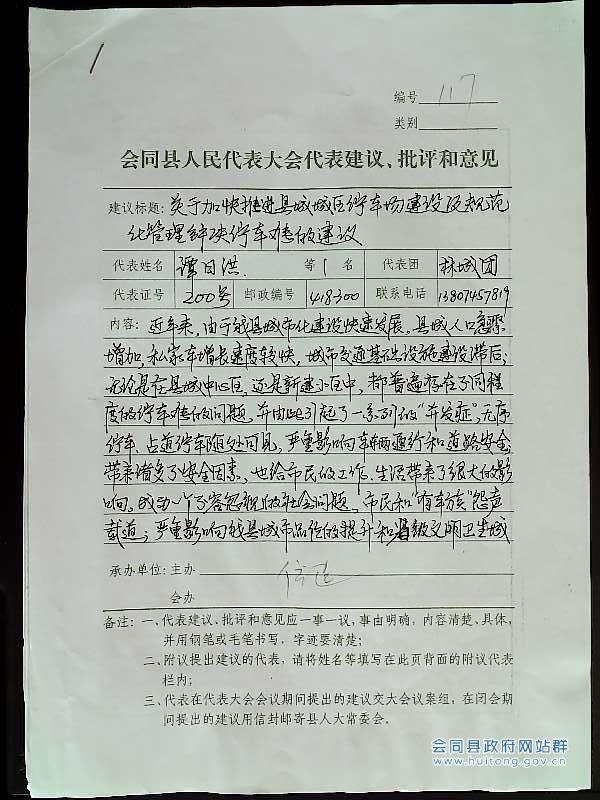 编号 117
类别
会同县人民代表大会代表建议、批评和意见
建议标题：关于加快推进县城城区停车场建设及规范
化管理解决停车难的建议
代表姓名 谭日洪 等 1 名 代表团 林城团
代表证号 200号 邮政编号 418300 联系电话 13807457819
内容：近年来，由于我县城市化建设快速发展，县城人口急聚
增加，私家车增长速度较快，城市交通基础设施建设滞后；
无论是在县城中心区，还是新建小区中，都普遍存在不同程
度的停车难的问题，并由此引起了一系列的“并发症”，无序
停车、占道停车随处可见，严重影响车辆通行和道路安全，
带来诸多不安全因素，也给市民的工作、生活带来了很大的影
响，成为一个不容忽视的社会问题，市民和“有车族”怨声
载道；严重影响我县城市品位的提升和省级文明卫生城
承办单位：主办 住建
会办
备注：一、代表建议、批评和意见应一事一议，事由明确，内容清楚、具体，
并用钢笔或毛笔书写，字迹要清楚；
二、附议提出建议的代表，请将姓名等填写在此页背面的附议代表
栏内；
三、代表在代表大会会议期间提出的建议交大会议案组，在闭会期
间提出的建议用信封邮寄县人大常委会。
会同县政府网站群
www.huitong.gov.cn